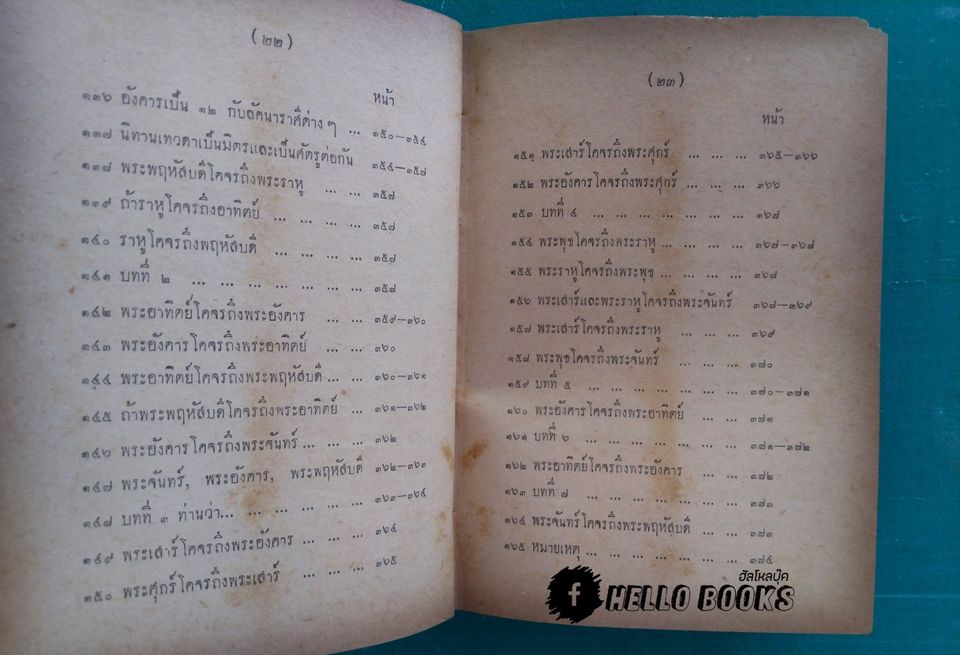 (๒๒)
หน้า
๑๓๖ อังคารเป็น ๑๒ กับลัคนาราศีต่าง ๆ ... ๓๕๐—๓๕๔
๑๓๗ นิทานเทวดาเป็นมิตรและเป็นศัตรูต่อกัน ๓๕๔—๓๕๗
๑๓๘ พระพฤหัสบดีโคจรถึงพระราหู ... ... ๓๕๗
๑๓๙ ถ้าราหูโคจรถึงอาทิตย์ ... ... ... ... ๓๕๗
๑๔๐ ราหูโคจรถึงพฤหัสบดี ... ... ... ... ๓๕๘
๑๔๑ บทที่ ๒ ... ... ... ... ... ... ... ๓๕๘
๑๔๒ พระอาทิตย์โคจรถึงพระอังคาร ... ... ๓๕๙—๓๖๐
๑๔๓ พระอังคารโคจรถึงพระอาทิตย์ ... ... ๓๖๐
๑๔๔ พระอาทิตย์โคจรถึงพระพฤหัสบดี ... ... ๓๖๐—๓๖๑
๑๔๕ ถ้าพระพฤหัสบดีโคจรถึงพระอาทิตย์ ... ๓๖๑—๓๖๒
๑๔๖ พระอังคารโคจรถึงพระจันทร์ ... ... ... ๓๖๒
๑๔๗ พระจันทร์, พระอังคาร, พระพฤหัสบดี ๓๖๒—๓๖๓
๑๔๘ บทที่ ๓ ท่านว่า... ... ... ... ... ๓๖๓—๓๖๔
๑๔๙ พระเสาร์โคจรถึงพระอังคาร ... ... ... ๓๖๔
๑๕๐ พระศุกร์โคจรถึงพระเสาร์ ... ... ... ๓๖๕
(๒๓)
หน้า
๑๕๑ พระเสาร์โคจรถึงพระศุกร์ ... ... ... ๓๖๕—๓๖๖
๑๕๒ พระอังคารโคจรถึงพระศุกร์ ... ... ... ๓๖๖
๑๕๓ บทที่ ๔ ... ... ... ... ... ... ... ๓๖๗
๑๕๔ พระพุธโคจรถึงพระราหู ... ... ... ... ๓๖๗—๓๖๘
๑๕๕ พระราหูโคจรถึงพระพุธ ... ... ... ... ๓๖๘
๑๕๖ พระเสาร์และพระราหูโคจรถึงพระจันทร์ ๓๖๘—๓๖๙
๑๕๗ พระเสาร์โคจรถึงพระราหู ... ... ... ๓๖๙
๑๕๘ พระพุธโคจรถึงพระจันทร์ ... ... ... ๓๗๐
๑๕๙ บทที่ ๕ ... ... ... ... ... ... ๓๗๐—๓๗๑
๑๖๐ พระอังคารโคจรถึงพระอาทิตย์ ... ... ๓๗๑
๑๖๑ บทที่ ๖ ... ... ... ... ... ... ๓๗๑—๓๗๒
๑๖๒ พระอาทิตย์โคจรถึงพระอังคาร ... ... ๓๗๒
๑๖๓ บทที่ ๗ ... ... ... ... ... ... ... ๓๗๓
๑๖๔ พระจันทร์โคจรถึงพระพฤหัสบดี ... ... ๓๗๓
๑๖๕ หมายเหตุ ... ... ... ... ... ... ๓๗๔
ฮัลโหลบุ๊ค
f HELLO BOOKS